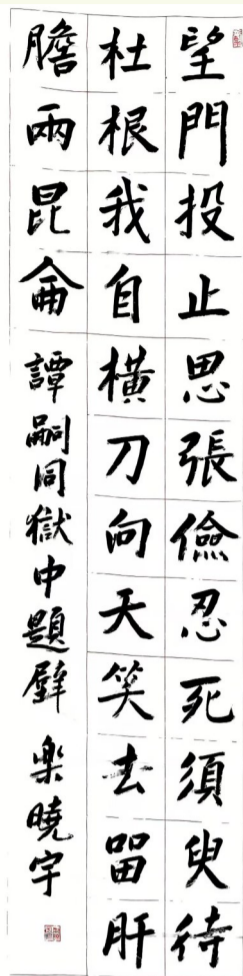 望門投止思張儉忍死須臾待
杜根我自橫刀向天笑去留肝
膽兩昆侖 譚嗣同獄中題壁 楽曉宇